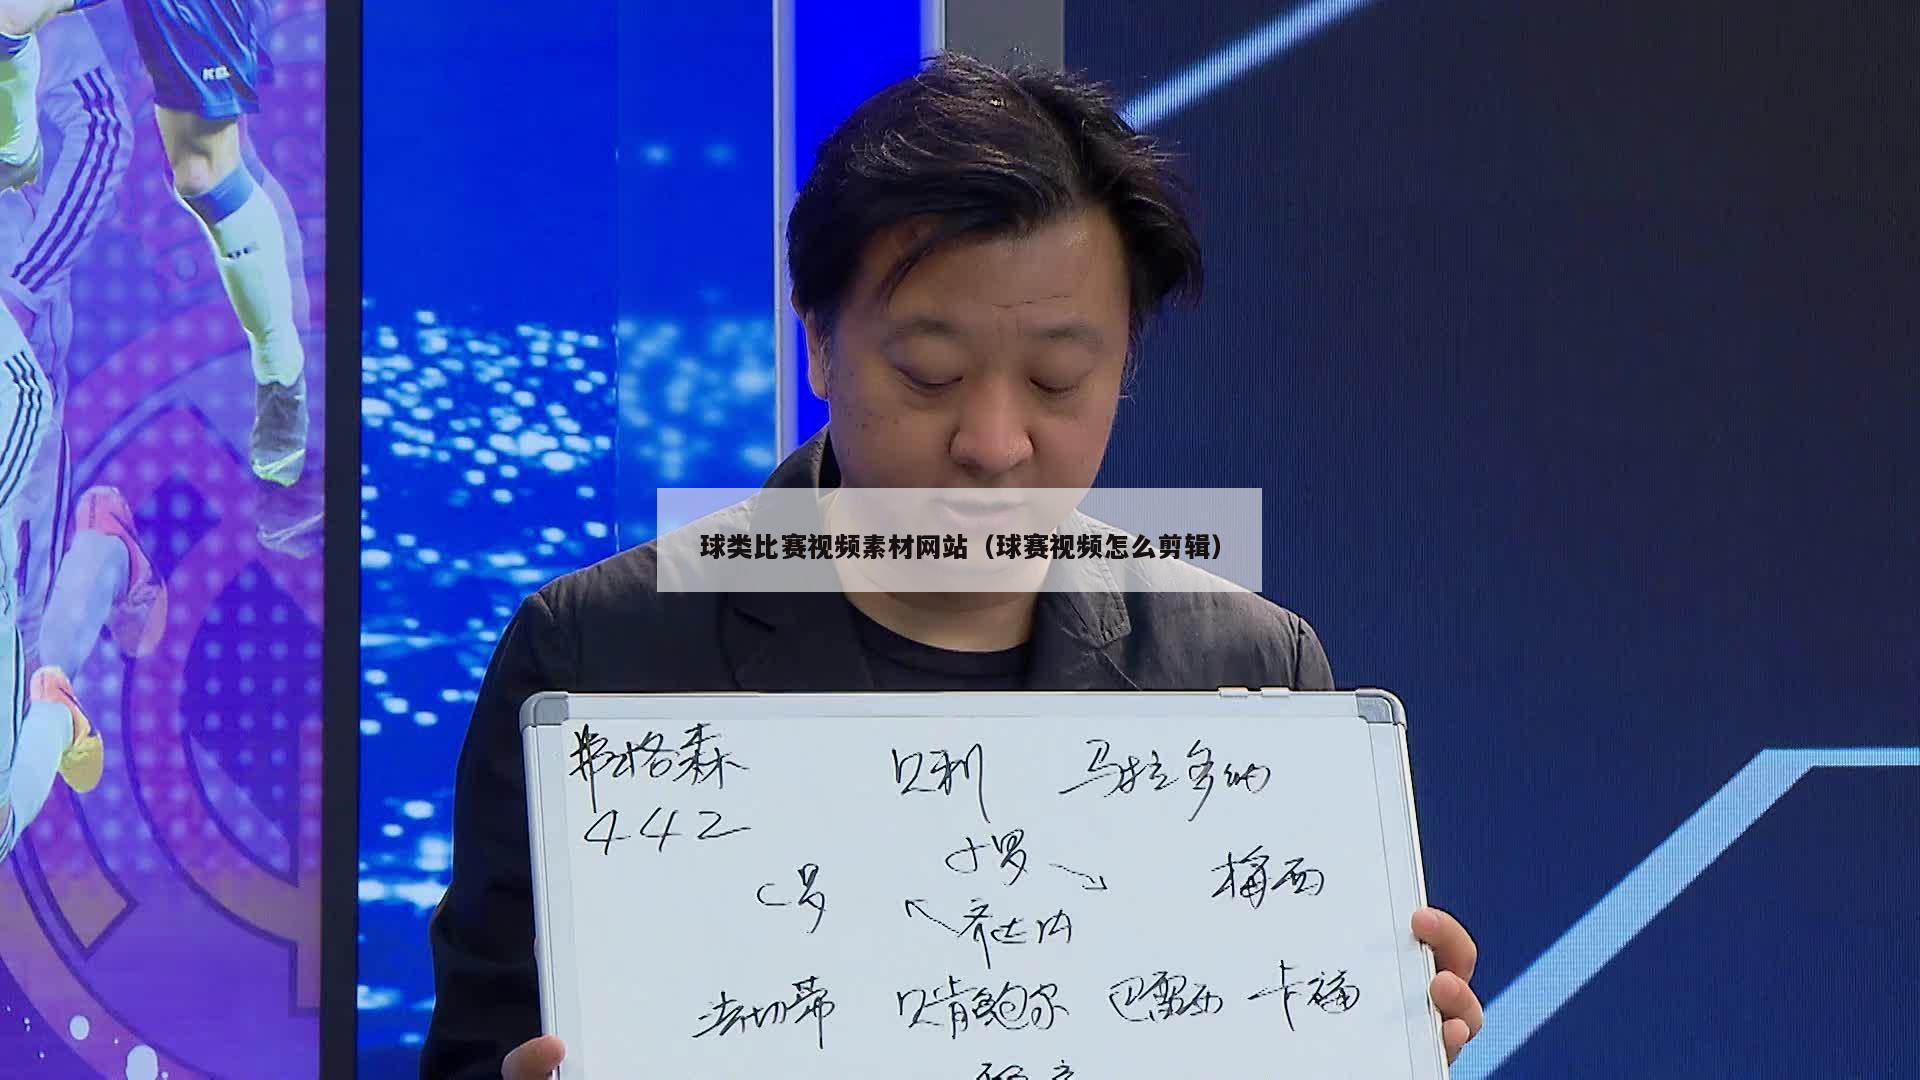 球类比赛视频素材网站（球赛视频怎么剪辑）
弗格森 贝利 马拉多纳
442
C罗 小罗 梅西
齐达内
法切蒂 贝肯鲍尔 巴雷西 卡福